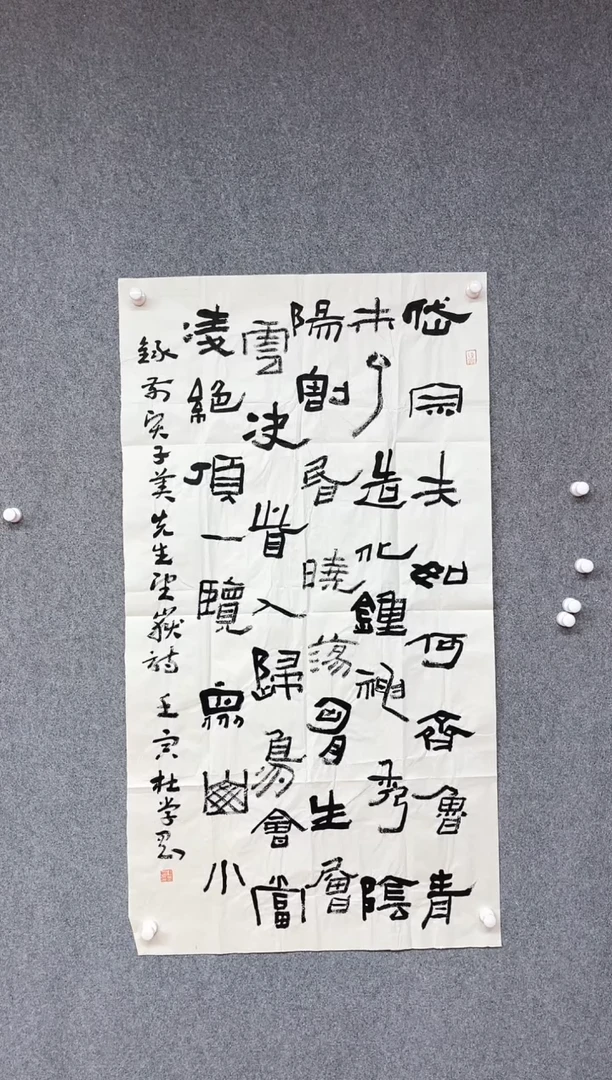 岱宗夫如何齊魯青
未了造化鍾神秀陰
陽割昏曉蕩胷生層
雲決眥入歸鳥會當
凌絕頂一覽眾山小
錄前賢子美先生望嶽詩 壬寅杜学